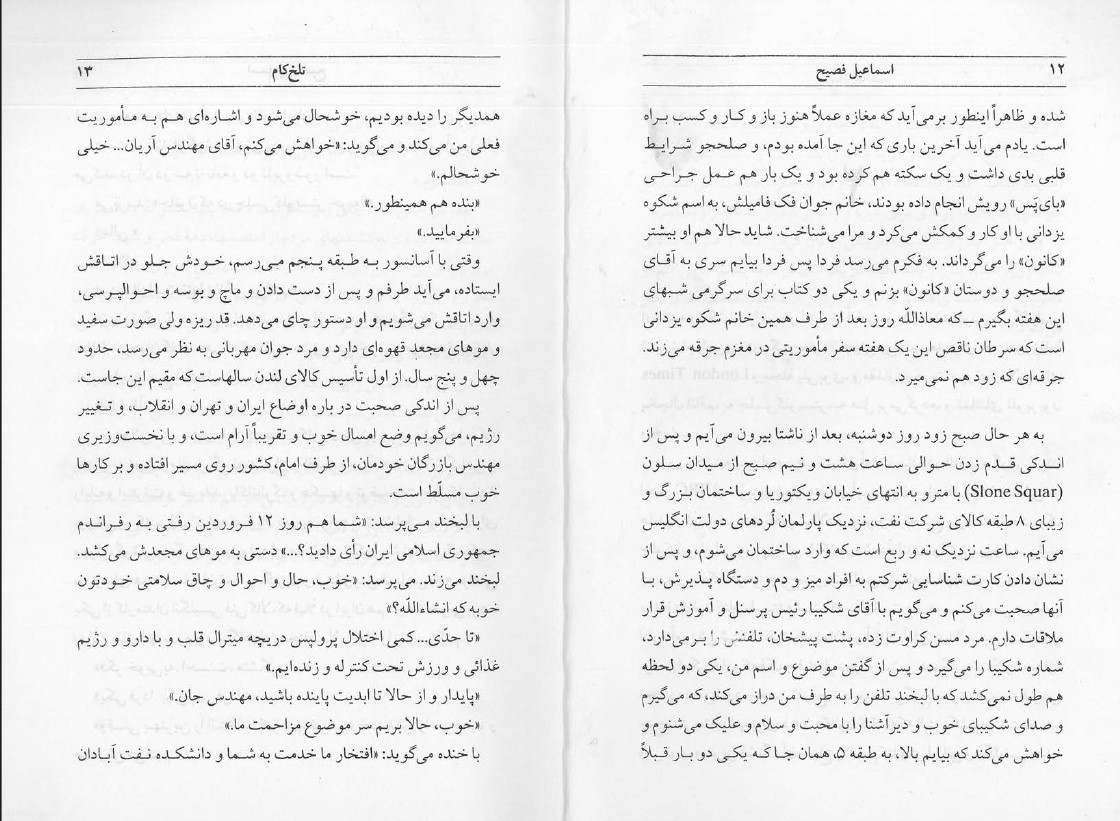 ۱۲
اسماعیل فصیح
شده و ظاهراً اینطور برمی‌آید که مغازه عملاً هنوز باز و کار و کسب براه
است. یادم می‌آید آخرین باری که این جا آمده بودم، و صلحجو شرایط
قلبی بدی داشت و یک سکته هم کرده بود و یک بار هم عمل جراحی
«بای‌پَس» رویش انجام داده بودند، خانم جوان فک فامیلش، به اسم شکوه
یزدانی با او کار و کمکش می‌کرد و مرا می‌شناخت. شاید حالا هم او بیشتر
«کانون» را می‌گرداند. به فکرم می‌رسد فردا پس فردا بیایم سری به آقای
صلحجو و دوستان «کانون» بزنم و یکی دو کتاب برای سرگرمی شبهای
این هفته بگیرم ــ که معاذاللّه روز بعد از طرف همین خانم شکوه یزدانی
است که سرطان ناقص این یک هفته سفر مأموریتی در مغزم جرقه می‌زند.
جرقه‌ای که زود هم نمی‌میرد.
به هر حال صبح زود روز دوشنبه، بعد از ناشتا بیرون می‌آیم و پس از
اندکی قدم زدن حوالی ساعت هشت و نیم صبح از میدان سلون
(Slone Squar) با مترو به انتهای خیابان ویکتوریا و ساختمان بزرگ و
زیبای ۸ طبقه کالای شرکت نفت، نزدیک پارلمان لُردهای دولت انگلیس
می‌آیم. ساعت نزدیک نه و ربع است که وارد ساختمان می‌شوم، و پس از
نشان دادن کارت شناسایی شرکتم به افراد میز و دم و دستگاه پذیرش، با
آنها صحبت می‌کنم و می‌گویم با آقای شکیبا رئیس پرسنل و آموزش قرار
ملاقات دارم. مرد مسن کراوت زده، پشت پیشخان، تلفنش را برمی‌دارد،
شماره شکیبا را می‌گیرد و پس از گفتن موضوع و اسم من، یکی دو لحظه
هم طول نمی‌کشد که با لبخند تلفن را به طرف من دراز می‌کند، که می‌گیرم
و صدای شکیبای خوب و دیرآشنا را با محبت و سلام و علیک می‌شنوم و
خواهش می‌کند که بیایم بالا، به طبقه ۵، همان جا که یکی دو بار قبلاً
تلخ‌کام
۱۳
همدیگر را دیده بودیم، خوشحال می‌شود و اشاره‌ای هم به مأموریت
فعلی من می‌کند و می‌گوید: «خواهش می‌کنم، آقای مهندس آریان... خیلی
خوشحالم.»
«بنده هم همینطور.»
«بفرمایید.»
وقتی با آسانسور به طبقه پنجم می‌رسم، خودش جلو در اتاقش
ایستاده، می‌آید طرفم و پس از دست دادن و ماچ و بوسه و احوالپرسی،
وارد اتاقش می‌شویم و او دستور چای می‌دهد. قد ریزه ولی صورت سفید
و موهای مجعد قهوه‌ای دارد و مرد جوان مهربانی به نظر می‌رسد، حدود
چهل و پنج سال. از اول تأسیس کالای لندن سالهاست که مقیم این جاست.
پس از اندکی صحبت در باره اوضاع ایران و تهران و انقلاب، و تغییر
رژیم، می‌گویم وضع امسال خوب و تقریباً آرام است، و با نخست‌وزیری
مهندس بازرگان خودمان، از طرف امام، کشور روی مسیر افتاده و بر کارها
خوب مسلّط است.
با لبخند می‌پرسد: «شما هم روز ۱۲ فروردین رفتی به رفراندم
جمهوری اسلامی ایران رأی دادید؟...» دستی به موهای مجعدش می‌کشد.
لبخند می‌زند. می‌پرسد: «خوب، حال و احوال و چاق سلامتی خودتون
خوبه که انشاءاللّه؟»
«تا حدّی... کمی اختلال پرولپس دریچه میترال قلب و با دارو و رژیم
غذائی و ورزش تحت کنترله و زنده‌ایم.»
«پایدار و از حالا تا ابدیت پاینده باشید، مهندس جان.»
«خوب، حالا بریم سر موضوع مزاحمت ما.»
با خنده می‌گوید: «افتخار ما خدمت به شما و دانشکده نفت آبادان